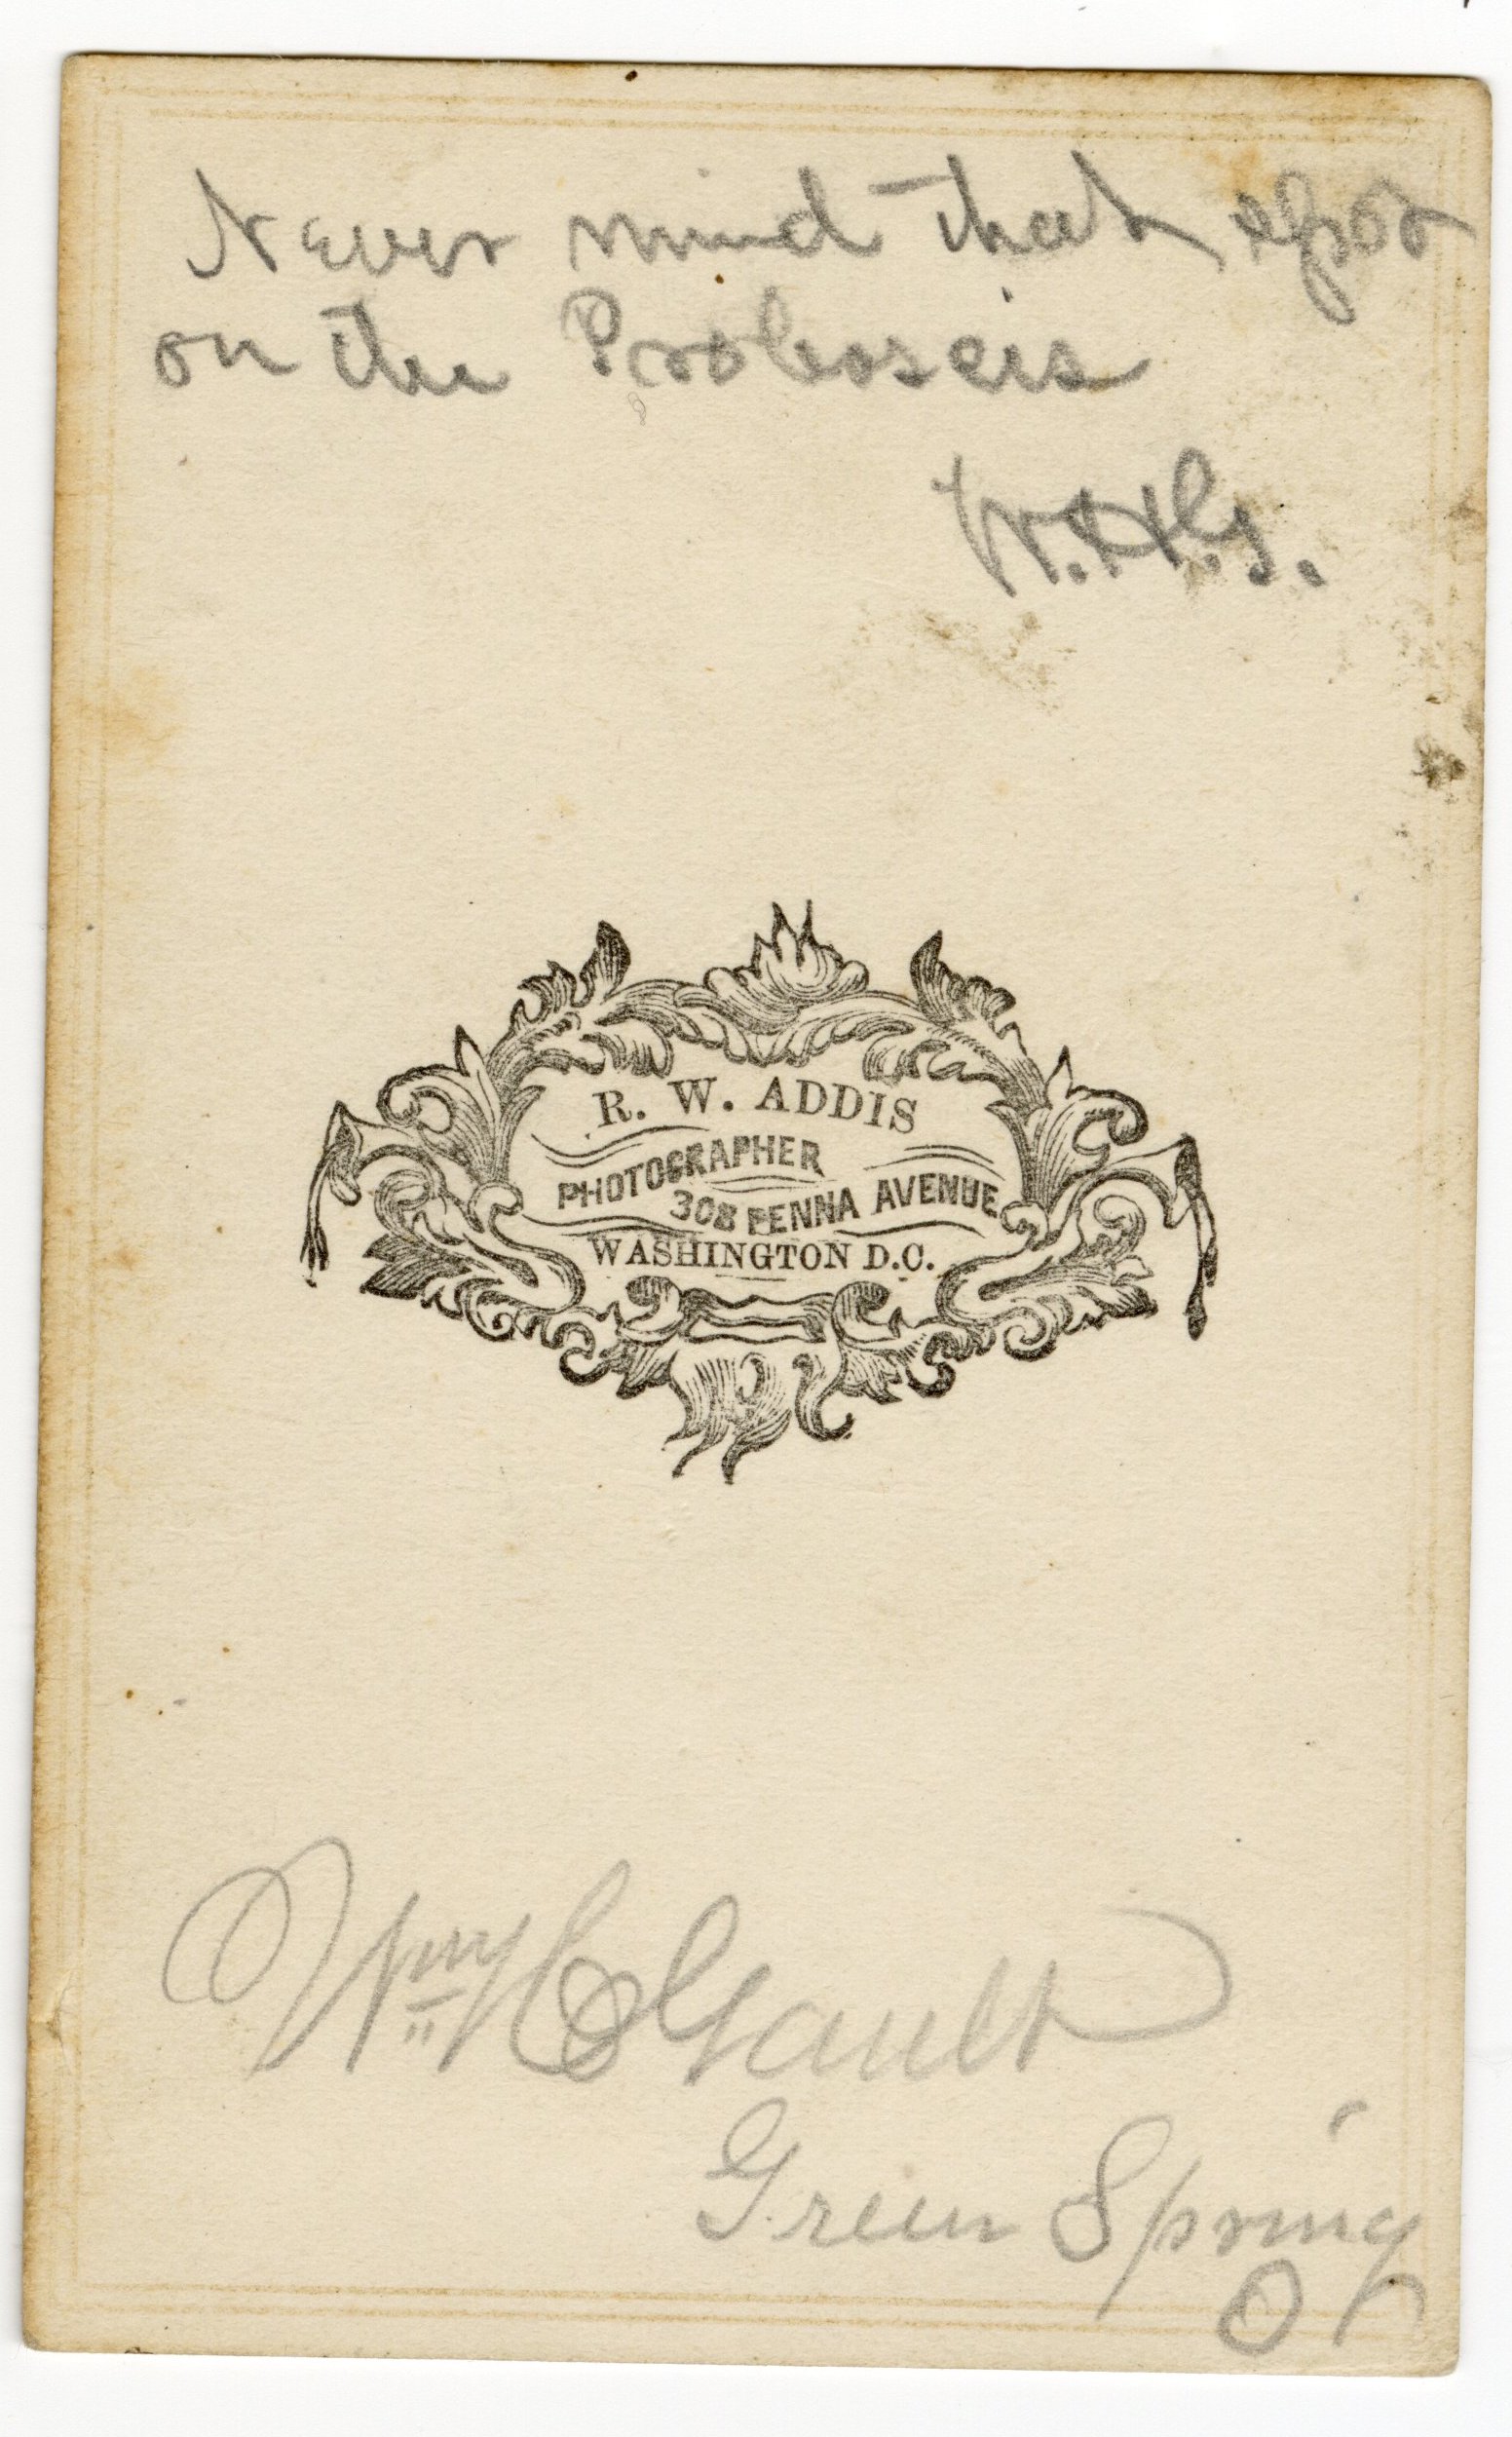 Never mind that spot
on the Proboscis
W.H.G.
R. W. ADDIS
PHOTOGRAPHER
308 PENNA AVENUE
WASHINGTON D.C.
Wm H Gault
Green Spring
O